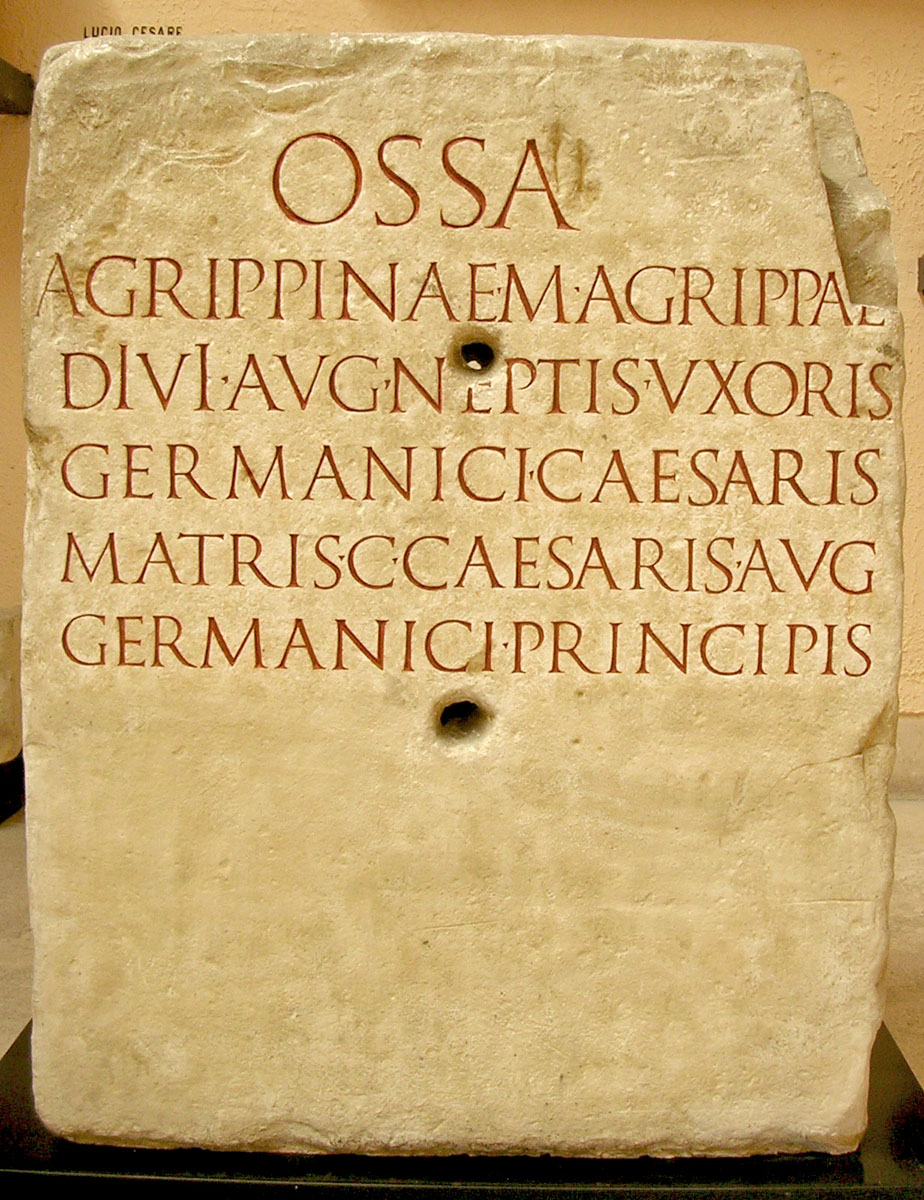 LUCIO CESARE
OSSA
AGRIPPINAE·M·AGRIPPAE
DIVI·AVG·NEPTIS·VXORIS
GERMANICI·CAESARIS
MATRIS·C·CAESARIS·AVG
GERMANICI·PRINCIPIS